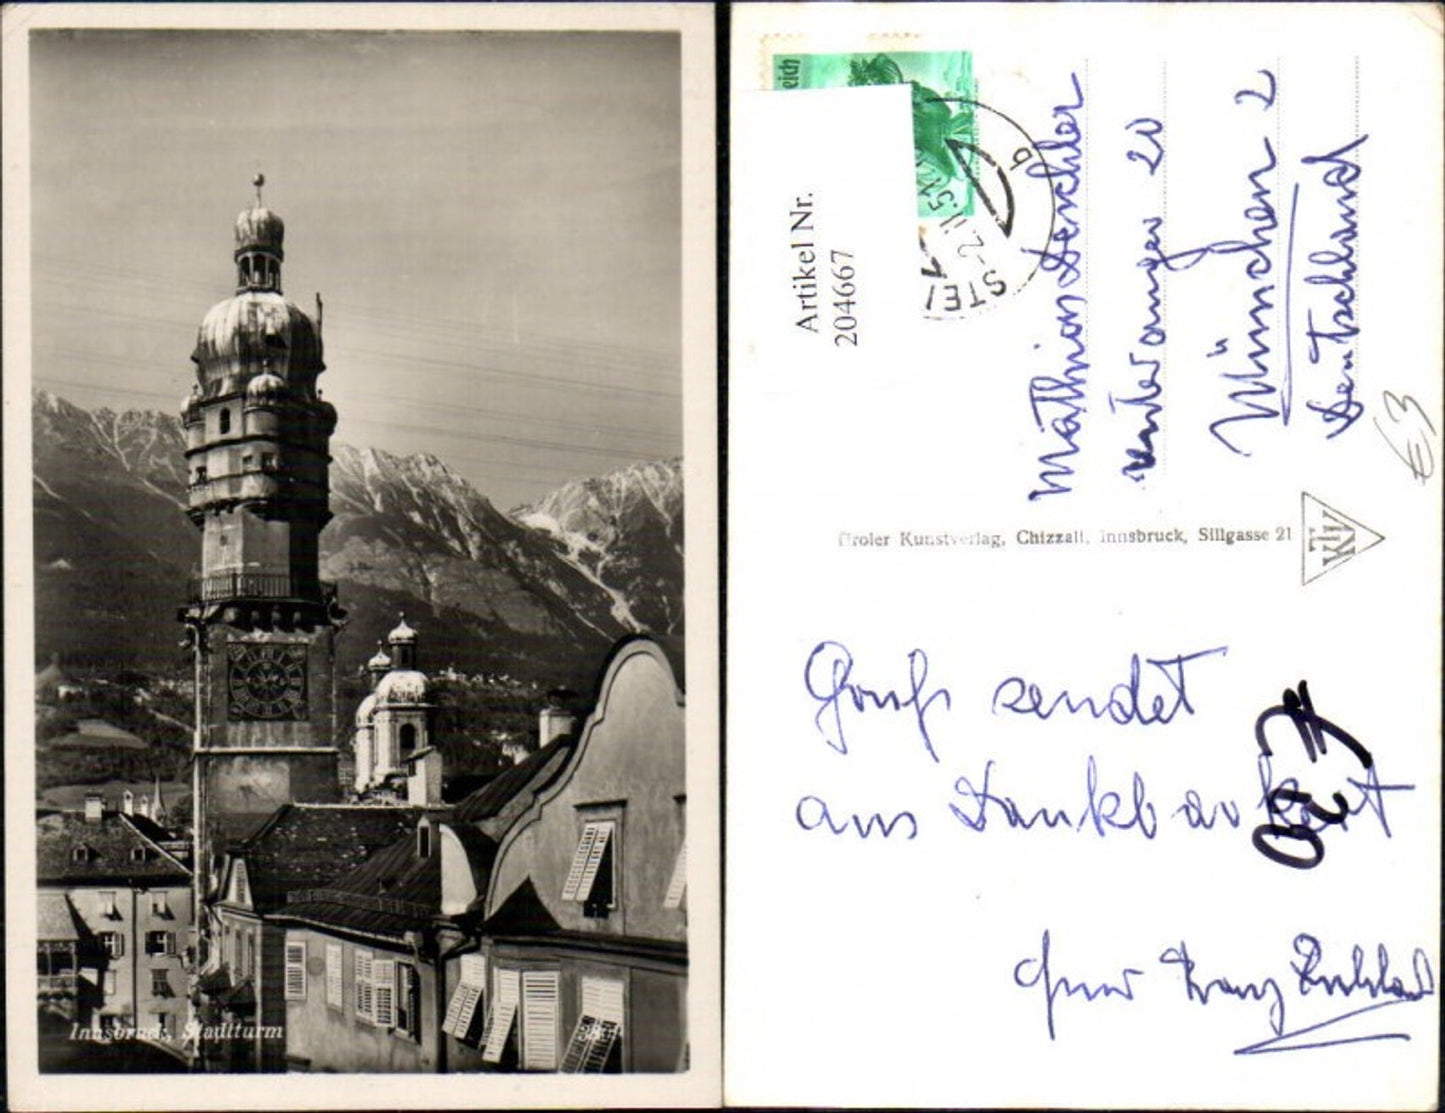 Innsbruck, Stadtturm
eich
Artikel Nr.
204667
STEI
-2.II.51
b
Mathias Denchler
Unteranger 20
München 2
Deutschland
€3
Tiroler Kunstverlag, Chizzali, Innsbruck, Sillgasse 21
Gruß sendet
aus Dankbarkeit
Franz